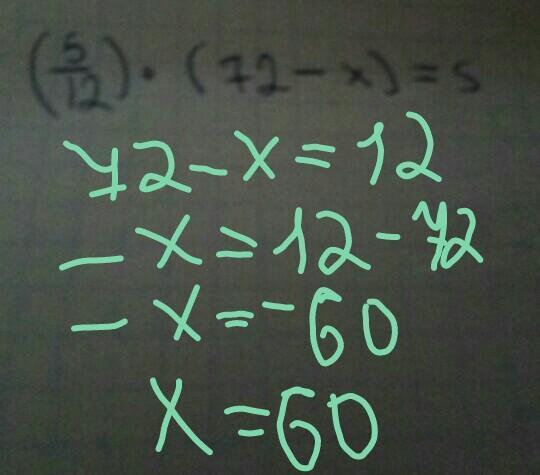 (5/12) · (72 - x) = 5
72 - x = 12
- x = 12 - 72
- x = -60
x = 60